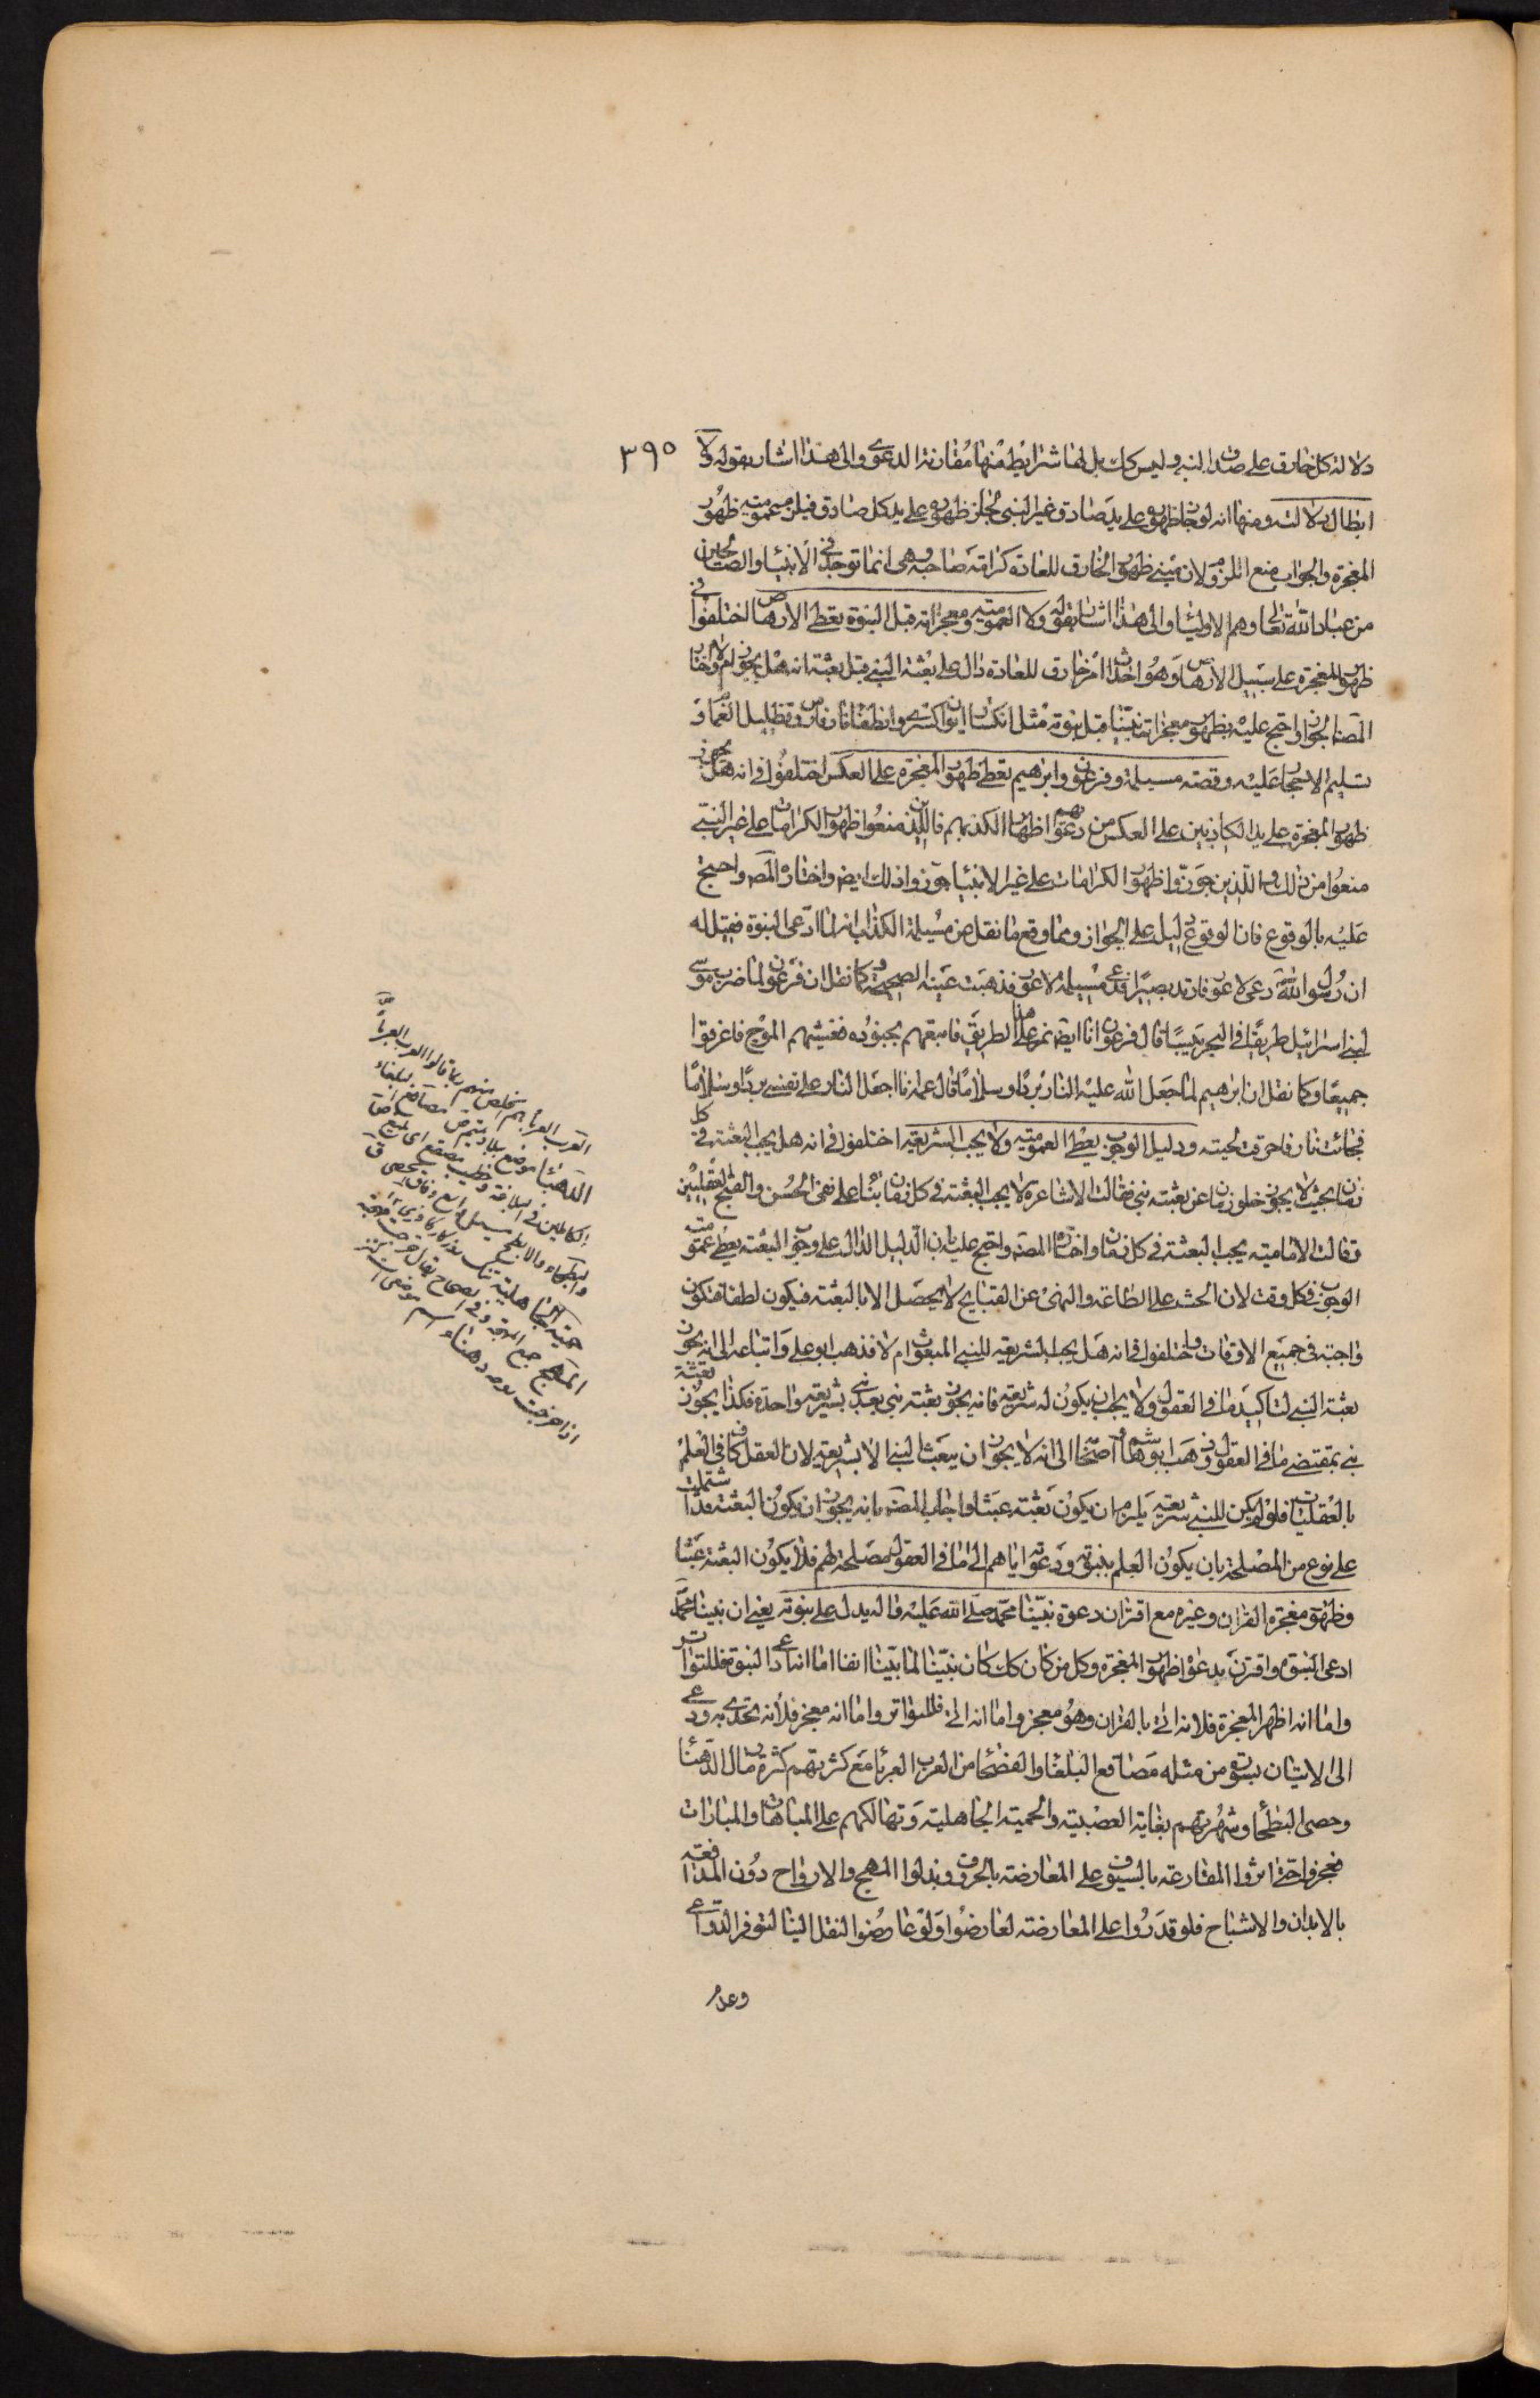 ٣٩٥
دلالة كل خارق على صدق النبى وليس كك بل لها شرايط منها مقارنة الدعوى والى هذا اشار بقوله ولا
ابطال دلالته ومنها انه لو جاز ظهوره على يد صادق غير النبى لجاز ظهوره على يد كل صادق فيلزم عمومية ظهور
المعجزة والجواب منع اللزوم لان مبنى ظهور الخارق للعادة كرامة صاحبه وهى انما توجد فى الانبيا والصالحين
من عباد الله تعالى وهم الاوليا والى هذا اشار بقوله ولا العمومية ومعجزاته قبل النبوة يعطى الارهاص اختلفوا فى
ظهور المعجزة على سبيل الارهاص وهو احداث امر خارق للعادة دال على بعثة النبى قبل بعثته انه هل يجوز ام لا واختار
المصنف الجواز واحتج عليه بظهور معجزات نبينا قبل نبوته مثل انكسار ايوان كسرى وانطفا نار فارس وتظليل الغمام و
تسليم الاحجار عليه وقصة مسيلمة وفرعون وابرهيم يعطى ظهور المعجزة على العكس اختلفوا فى انه هل يجوز
ظهور المعجزة على يد الكاذبين على العكس من دعويهم اظهارا لكذبهم فالذين منعوا ظهور الكرامات على غير النبى
منعوا من ذلك والذين جوزوا ظهور الكرامات على غير الانبيا جوزوا ذلك ايضا واختاره المصنف واحتج
عليه بالوقوع فان الوقوع دليل على الجواز ومما وقع ما نقل من مسيلمة الكذاب انه لما ادعى النبوة فقيل له
ان رسول الله دعى لاعور فارتد بصيرا فدعى مسيلمة لاعور فذهبت عينه الصحيحة وكما نقل ان فرعون لما ضرب موسى
لبنى اسرائيل طريقا فى البحر يبسا قال فرعون انا ايضا نمر على هذا الطريق فاتبعهم بجنوده فغشيهم الموج فاغرقوا
جميعا وكما نقل ان ابرهيم لما جعل الله عليه النار بردا وسلاما قال عمه انا اجعل النار على نفسى بردا وسلاما
فجائت نار فاحرقت لحيته ودليل الوجوب يعطى العمومية ولا يجب الشريعة اختلفوا فى انه هل يجب البعثة فى كل
زمان بحيث لا يجوز خلو زمان عن بعثة نبى فقالت الاشاعرة لا يجب البعثة فى كل زمان بنا على نفى الحسن والقبح العقليين
وقالت الامامية يجب البعثة فى كل زمان واختاره المصنف واحتج عليه بان الدليل الدال على وجوب البعثة يعطى عمومية
الوجوب فى كل وقت لان الحث على الطاعة والنهى عن القبايح لا يحصل الا بالبعثة فيكون لطفا فتكون
واجبة فى جميع الاوقات واختلفوا فى انه هل يجب الشريعة للنبى المبعوث ام لا فذهب ابو على واتباعه الى انه يجوز
بعثة النبى لتاكيد ما فى العقول ولا يجب ان يكون له شريعة فانه يجوز بعثة نبى بعد نبى بشريعة واحدة فكذا يجوز بعثة
نبى بمقتضى ما فى العقول وذهب ابو هاشم واصحابه الى انه لا يجوز ان يبعث النبى الا بشريعة لان العقل كاف فى العلم
بالعقليات فلو لم يكن للنبى شريعة يلزم ان يكون بعثته عبثا واجاب المصنف بانه يجوز ان يكون البعثة قد اشتملت
على نوع من المصلحة بان يكون العلم بنبوته ودعوته اياهم الى ما فى العقول مصلحة لهم فلا يكون البعثة عبثا
وظهور معجزة القران وغيره مع اقتران دعوة نبينا محمد صلى الله عليه واله يدل على نبوته يعنى ان نبينا محمد
ادعى النبوة واقترن بدعواه ظهور المعجزة وكل من كان كك كان نبينا لما بينا انفا اما انه ادعى النبوة فللتواتر
واما انه اظهر المعجزة فلانه اتى بالقران وهو معجز واما انه اتى فللتواتر واما انه معجز فلانه تحدى به ودعى
الى الاتيان بسورة من مثله مصاقع البلغا والفصحا من العرب العربا مع كثرتهم كثرة رمال الدهنا
وحصى البطحا وشهرتهم بغاية العصبية والحمية الجاهلية وتهالكهم على المباهات والمبارات
فعجزوا حتى اثروا المقارعة بالسيوف على المعارضة بالحروف وبذلوا المهج والارواح دون المدافعة
بالابدان والاشباح فلو قدروا على المعارضة لعارضوا ولو عارضوا لنقل الينا لتوفر الدواعى
وعدم
العرب العربا هم الخلص منهم ربما قالوا العرب العربا ص
الدهنا موضع ببلاد تميم ص